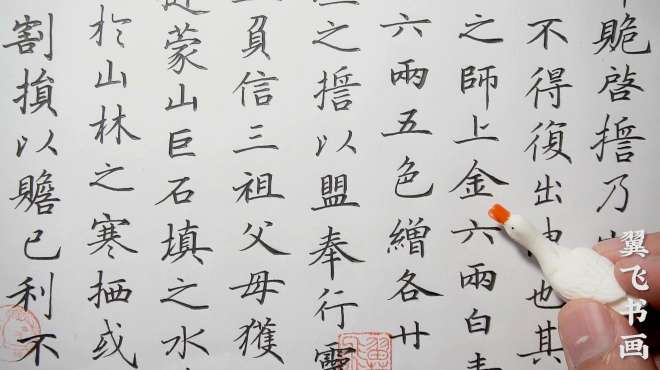 啓誓乃
不得復出也其
之師上金六兩白素
六兩五色繒各廿
之誓以盟奉行靈
負信三祖父母獲
蒙山巨石填之水
於山林之寒栖或
割損以贍己利不
翼飞书画